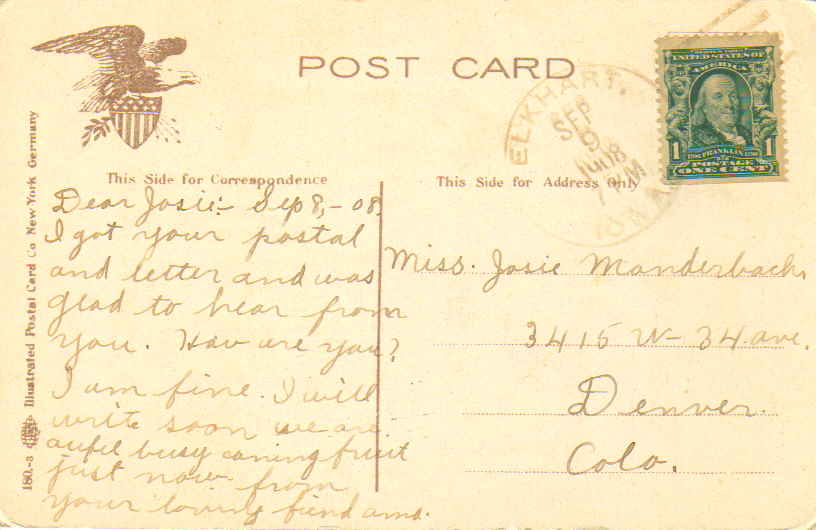 POST CARD
ELKHART,
SEP
9
1908
7 PM
UNITED STATES OF
AMERICA
1 FRANKLIN 1
POSTAGE
ONE CENT
This Side for Correspondence
This Side for Address Only
Dear Josie:- Sep 8,-08.
I got your postal
and letter and was
glad to hear from
you. How are you?
I am fine. I will
write soon we are
aufel busy caning fruit
just now from
your loving fiend
Miss. Josie Manderbach,
3415 W- 34 ave.
Denver.
Colo.
180.-3 Illustrated Postal Card Co New-York Germany